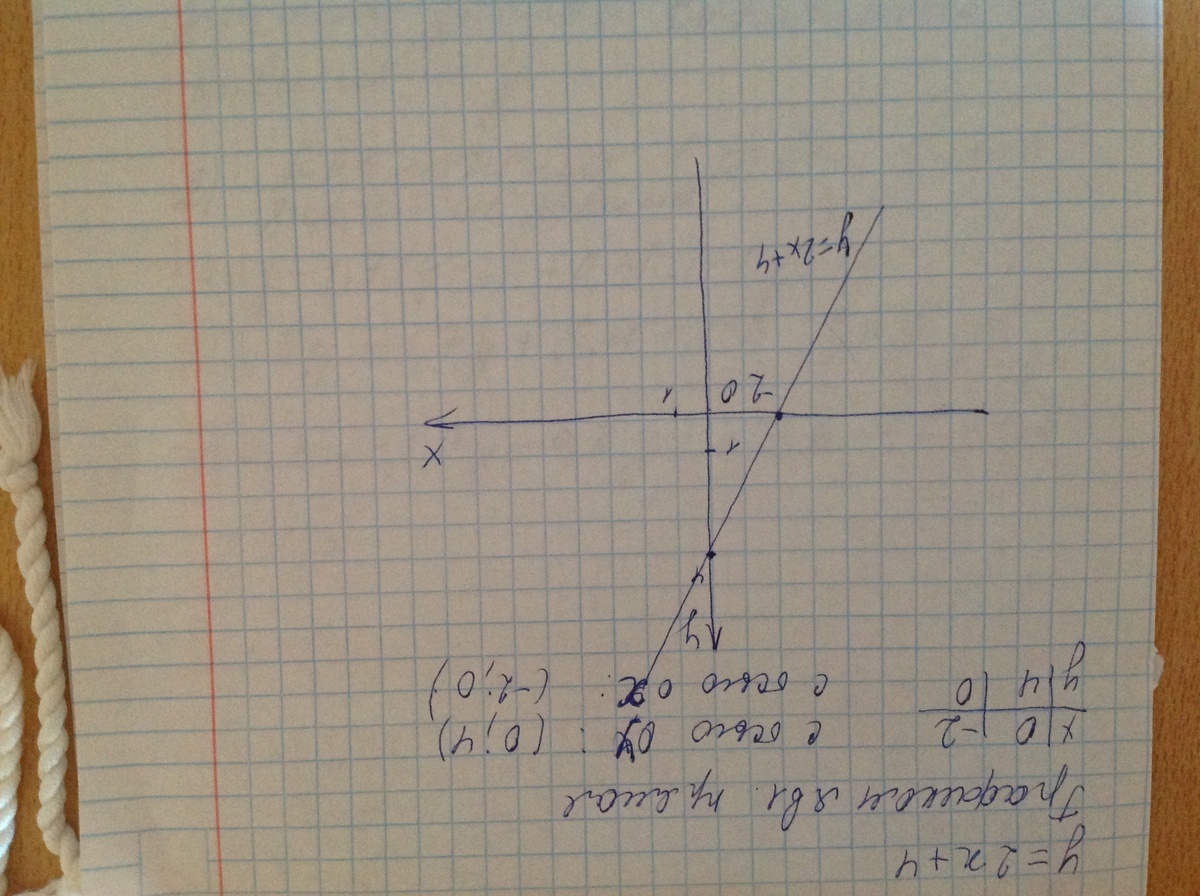 y = 2x + 4
Графиком явл. прямая
x | 0 | -2 с осью oy : (0; 4)
y | 4 | 0 с осью ox : (-2; 0)
y
y
4
1
x
-2 0 1
y=2x+4